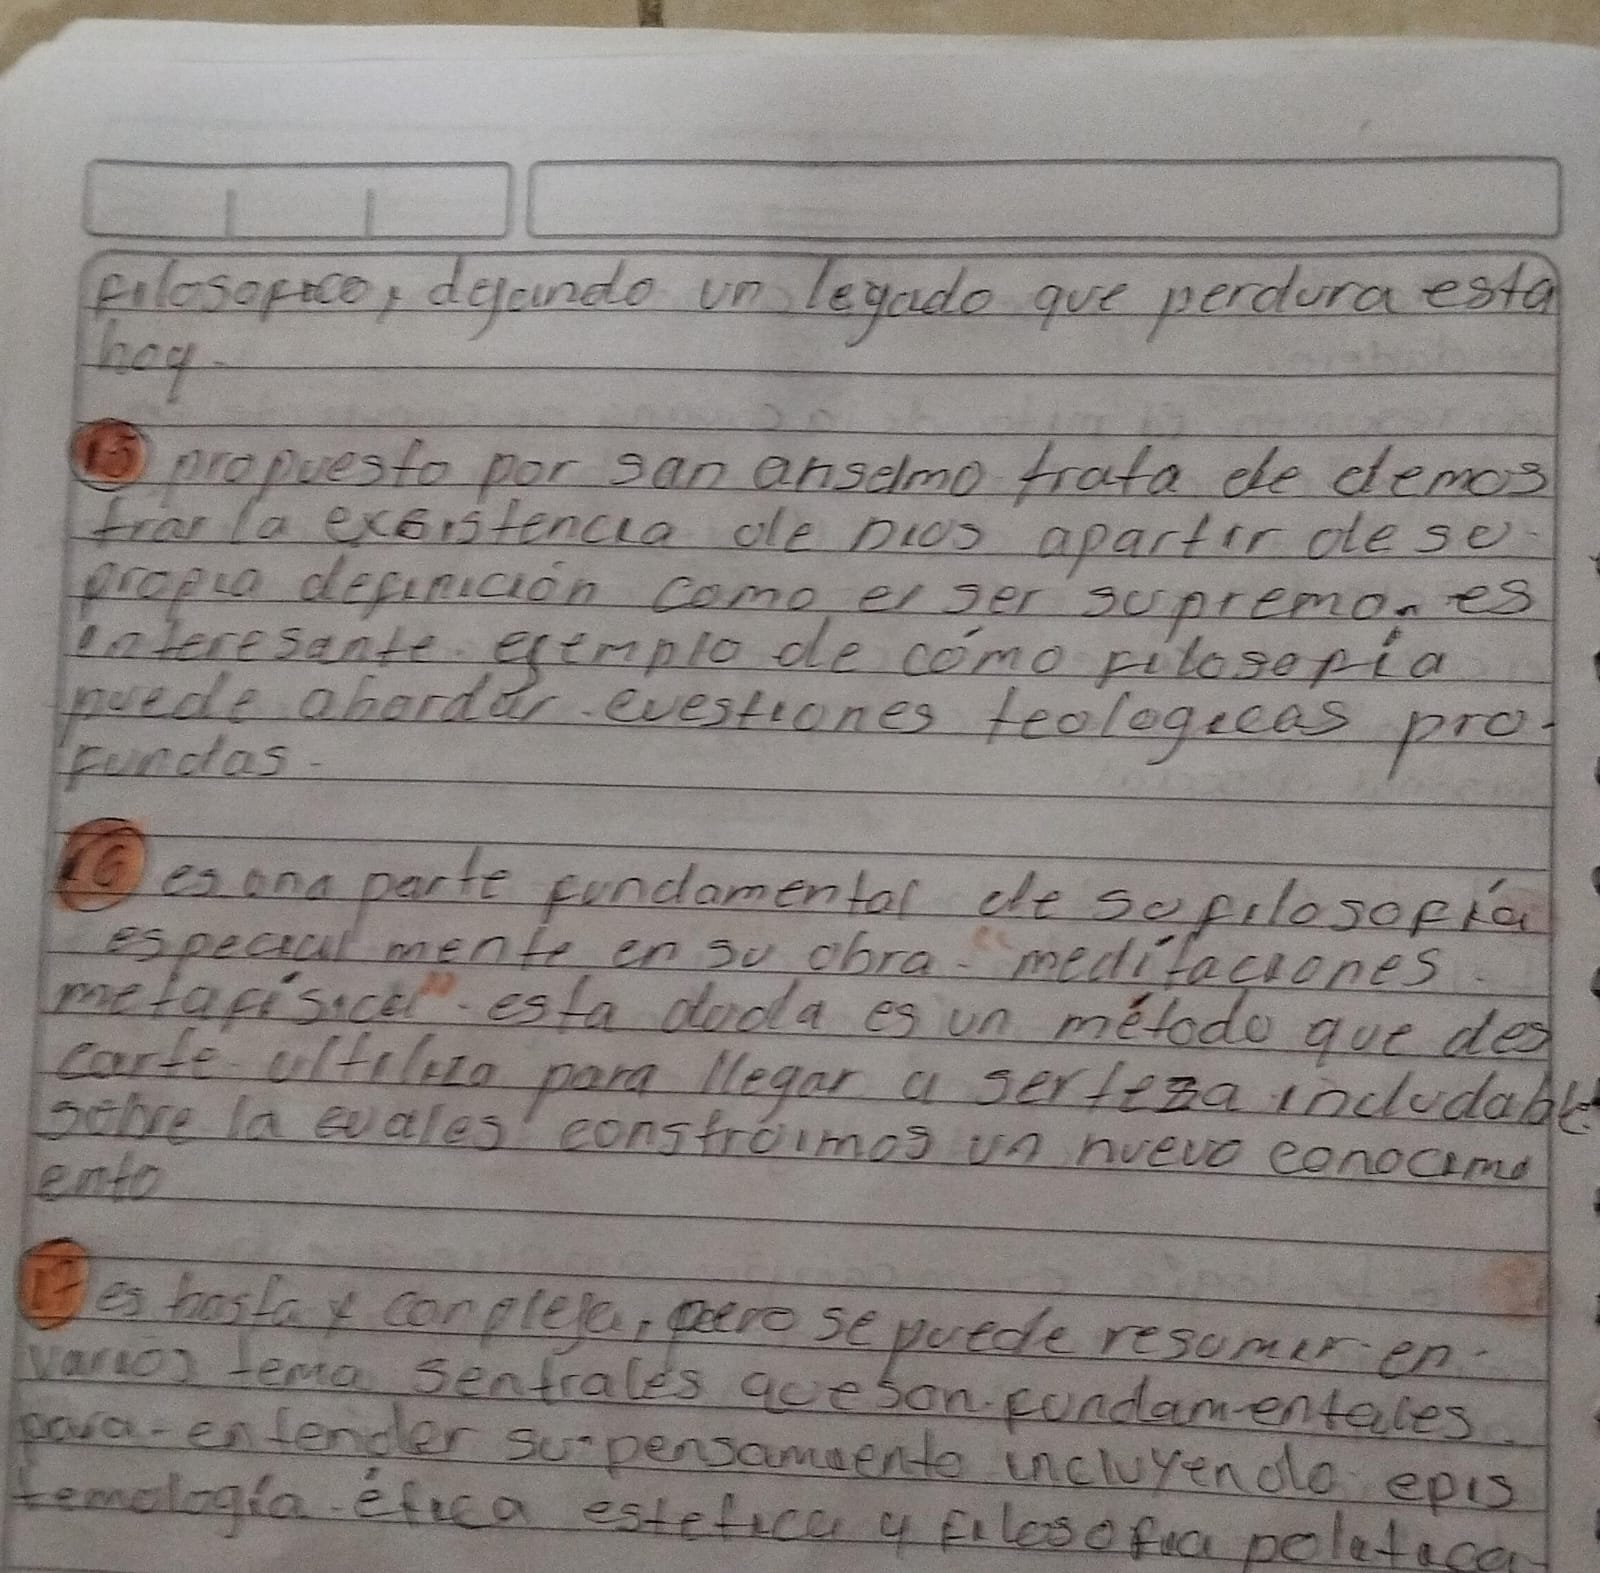 filosofico, dejando un legado que perdura esta
hoy.
15 propuesto por san anselmo trata de demos
trar la exsistencia de Dios apartir de su
propia definición como el ser supremo. es
interesante ejemplo de cómo filosofía
puede abordar cuestiones teologicas pro-
fundas.
16 es una parte fundamental de su filosofía
especial mente en su obra "meditaciones
metafísica". esta duda es un método que des
carte ultiliza para llegar a serteza indudable
sobre la cuales construimos un nuevo conocimi
ento
17 es basta y compleja, pero se puede resumir en
varios tema sentrales que son fundamentales
para entender su pensamiento incluyendo epis
temología ética estetica y filosofia politica